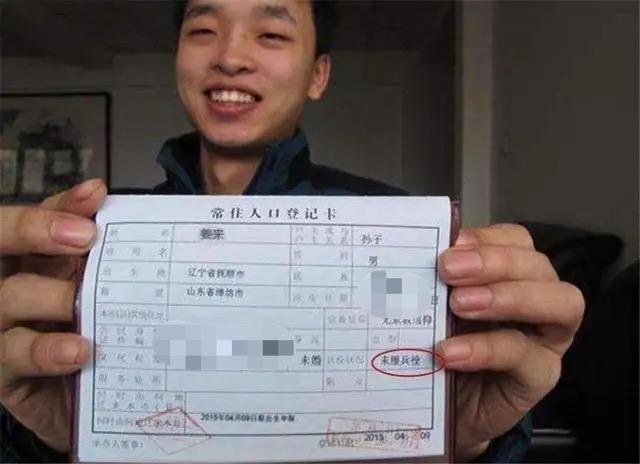 常住人口登记卡
姓 名 姜来 户主或与户主关系 孙子
曾用名 性别 男
出生地 辽宁省抚顺市 民族
籍贯 山东省潍坊市 出生日期 日
宗教信仰 无宗教信仰
公民身 证件编 身高 血型
文化程度 未婚 兵役状况 未服兵役
服务处所 职业
何时由何地
迁来本市
何时由何地迁来本址 2015年04月09日报出生申报
承办人签章: 2015 04 09